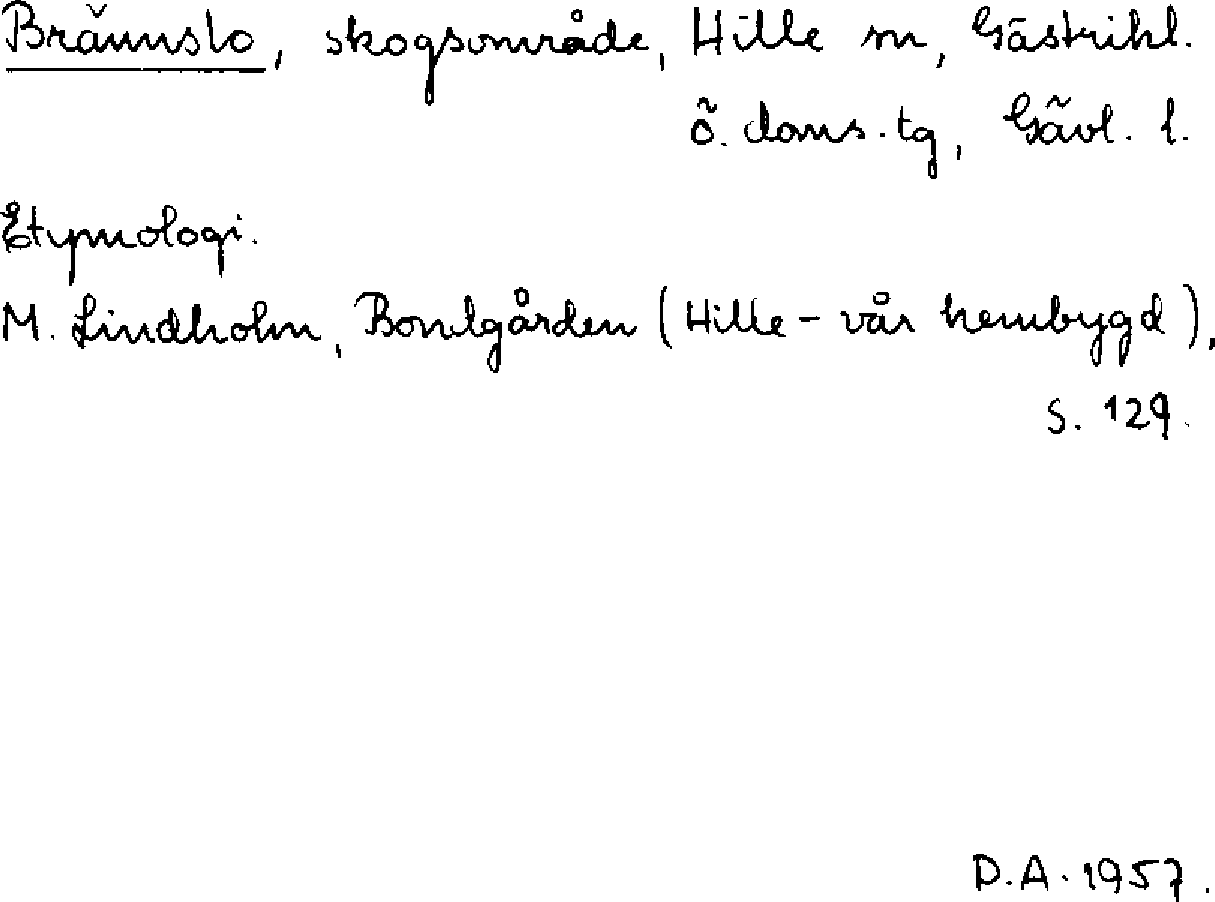 Brännslo, skogsområde, Hille sn, Gästrikl.
ö. doms. tg, Gävl. l.
Etymologi.
M. Lindholm, Bondgården (Hille - vår hembygd),
s. 129.
D.A. 1957.